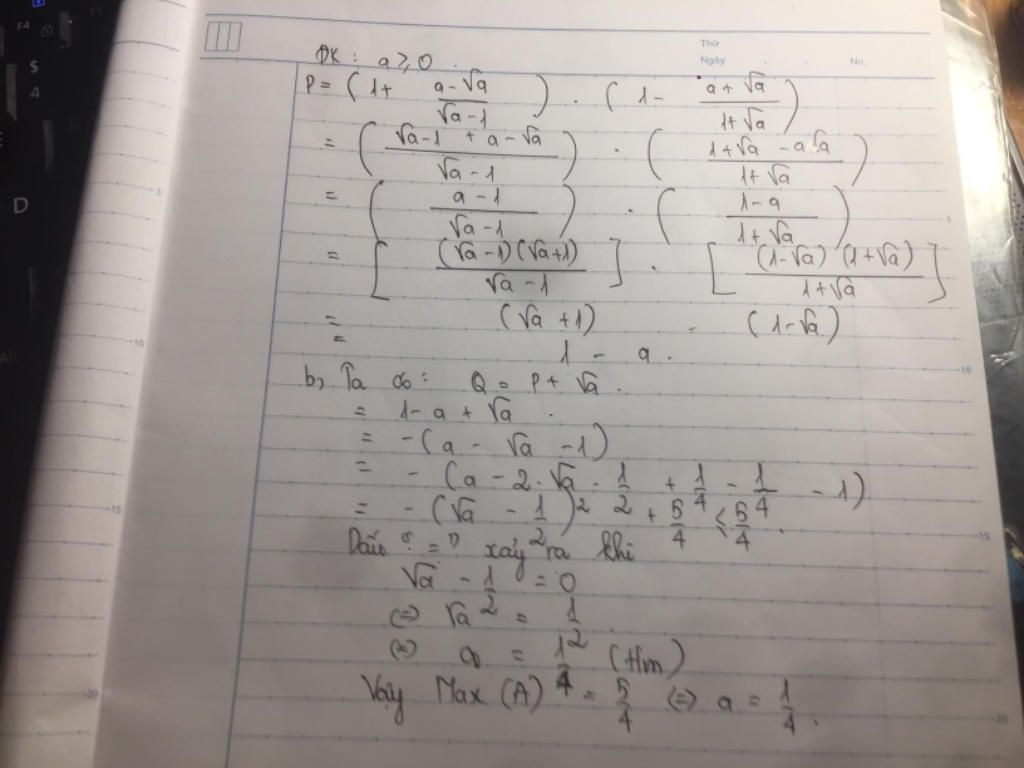 Thứ
Ngày . . No.
ĐK : a ≥ 0 .
P = ( 1 + (a - √a)/(√a - 1) ) . ( 1 - (a + √a)/(1 + √a) )
= ( (√a - 1 + a - √a)/(√a - 1) ) . ( (1 + √a - a √a)/(1 + √a) )
= ( (a - 1)/(√a - 1) ) . ( (1 - a)/(1 + √a) )
= [ (√a - 1)(√a + 1)/(√a - 1) ] . [ (1 - √a)(1 + √a)/(1 + √a) ]
= (√a + 1) . (1 - √a)
= 1 - a .
b, Ta có : Q = P + √a .
= 1 - a + √a .
= - (a - √a - 1)
= - (a - 2.√a . 1/2 + 1/4 - 1/4 - 1)
= - (√a - 1/2)² + 5/4 ≤ 5/4 .
Dấu "=" xảy ra khi
√a - 1/2 = 0
⇔ √a = 1/2
⇔ a = 1/4 (tm)
Vậy Max (A) = 5/4 ⇔ a = 1/4 .